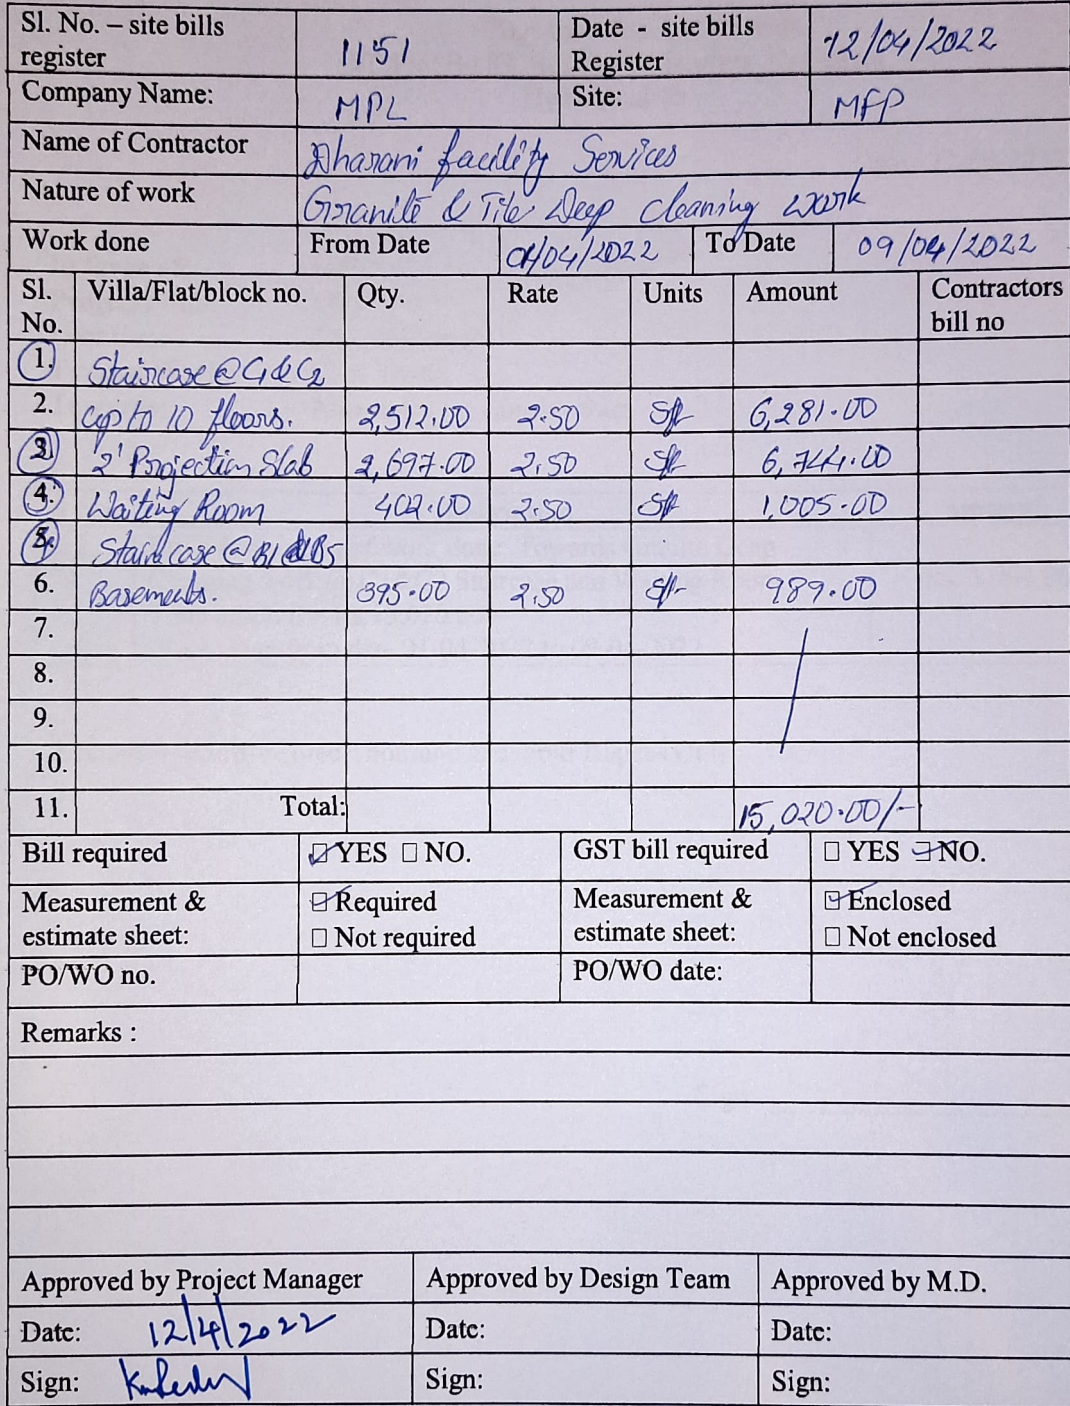 Sl. No. – site bills register 1151 Date - site bills Register 12/04/2022
Company Name: MPL Site: MFP
Name of Contractor Dharani facility Services
Nature of work Granite & Tile Deep cleaning work
Work done From Date 01/04/2022 To Date 09/04/2022
Sl. No. Villa/Flat/block no. Qty. Rate Units Amount Contractors bill no
1. Staircase @ C1 & C2
2. up to 10 floors. 2,512.00 2.50 Sft 6,281.00
3. 2' Projection Slab 2,697.00 2.50 Sft 6,744.00
4. Waiting Room 402.00 2.50 Sft 1,005.00
5. Staircase @ B1 & B5
6. Basements. 395.00 2.50 Sft 989.00
7.
8.
9.
10.
11. Total: 15,020.00/-
Bill required YES NO. GST bill required YES NO.
Measurement & estimate sheet: Required Not required Measurement & estimate sheet: Enclosed Not enclosed
PO/WO no. PO/WO date:
Remarks :
Approved by Project Manager Approved by Design Team Approved by M.D.
Date: 12/4/2022 Date: Date:
Sign: Sign: Sign: